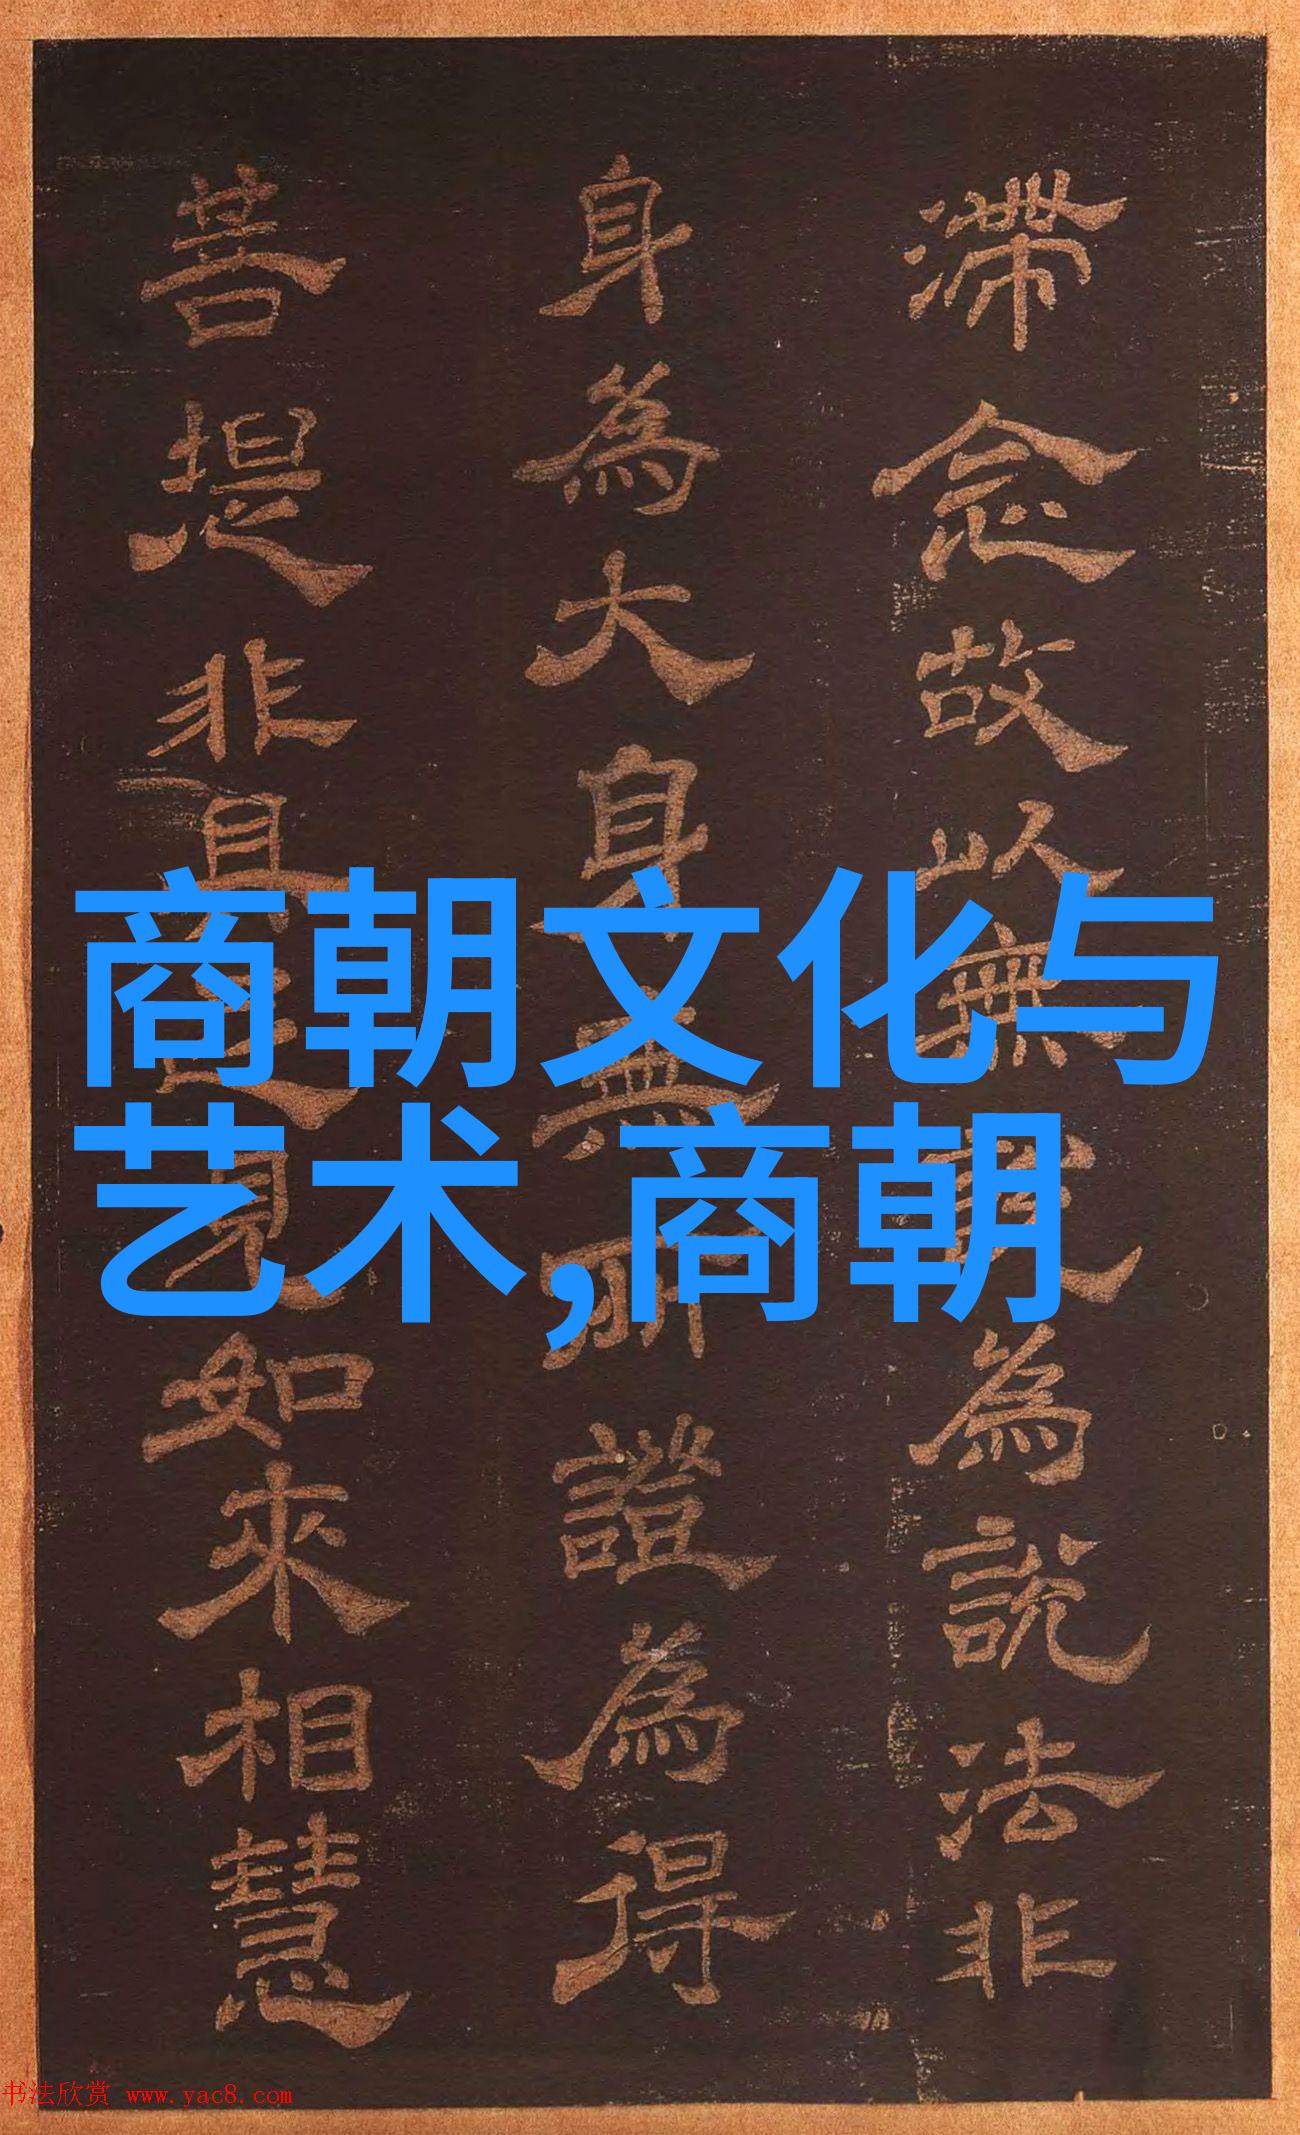 滯念故以無為說法非
身為大身無所證為得
菩提非具足見如來相慧
商朝文化与
艺术,商朝
书法欣赏 www.yac8.com